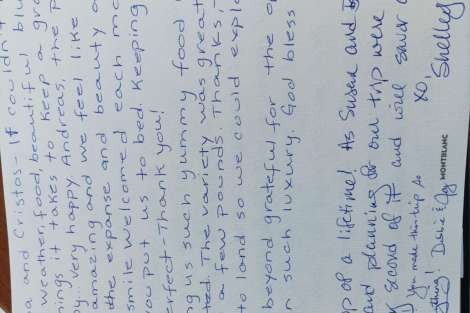 a and Cristos - If couldn't
weather, food, beautiful blu
nings it takes to keep a gro
py... very happy. Andreas, the p
amazing and we feel like
the expanse and beauty o
smile welcomed each mo
you put us to bed. Keeping
erfect - Thank you!
ng us such yummy food
ted. The variety was great
a few pounds. Thanks -
to land so we could explo
beyond grateful for the op
n such luxury. God bless
ip of a lifetime! As Susan and
and planning for our trip were
y second of it and will savor
XO,
Shelly
You made this trip so
ything! Debbie &
MONTBLANC